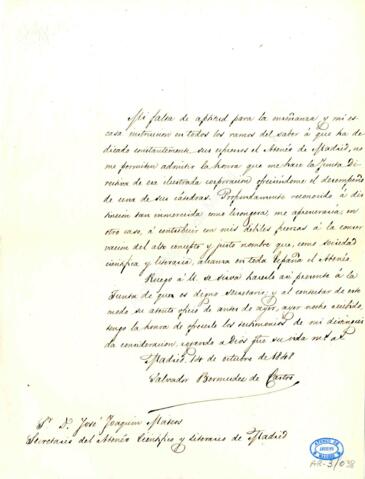 Mi falta de aptitud para la enseñanza y mi es-
casa instruccion en todos los ramos del saber á que ha de-
dicado constantemente sus esfuerzos el Ateneo de Madrid, no
me permiten admitir la honra que me hace la Junta Di-
rectiva de esa ilustrada corporacion ofreciéndome el desempeño
de una de sus cátedras. Profundamente reconocido á dis-
tincion tan inmerecida como lisongera, me apresuraria, en
otro caso, á contribuir con mis débiles fuerzas á la conser-
vacion del alto concepto y justo nombre que, como sociedad
científica y literaria, alcanza en toda España el Ateneo.
Ruego á U. se sirva hacerlo asi presente á la
Junta de que es digno secretario; y al contestar de este
modo su atento oficio de antes de ayer, ayer noche recibido,
tengo la honra de ofrecerle los testimonios de mi distinguida
consideracion, rogando á Dios gue su vida ms. as.
Madrid, 14 de octubre de 1848
Salvador Bermudez de Castro
Sr. D. José Joaquin Mateos
Secretario del Ateneo Científico y literario de Madrid
ATENEO DE MADRID
AR-3/038